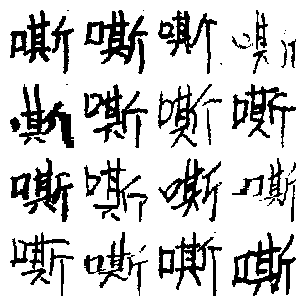 嘶嘶嘶嘶
嘶嘶嘶嘶
嘶嘶嘶嘶
嘶嘶嘶嘶